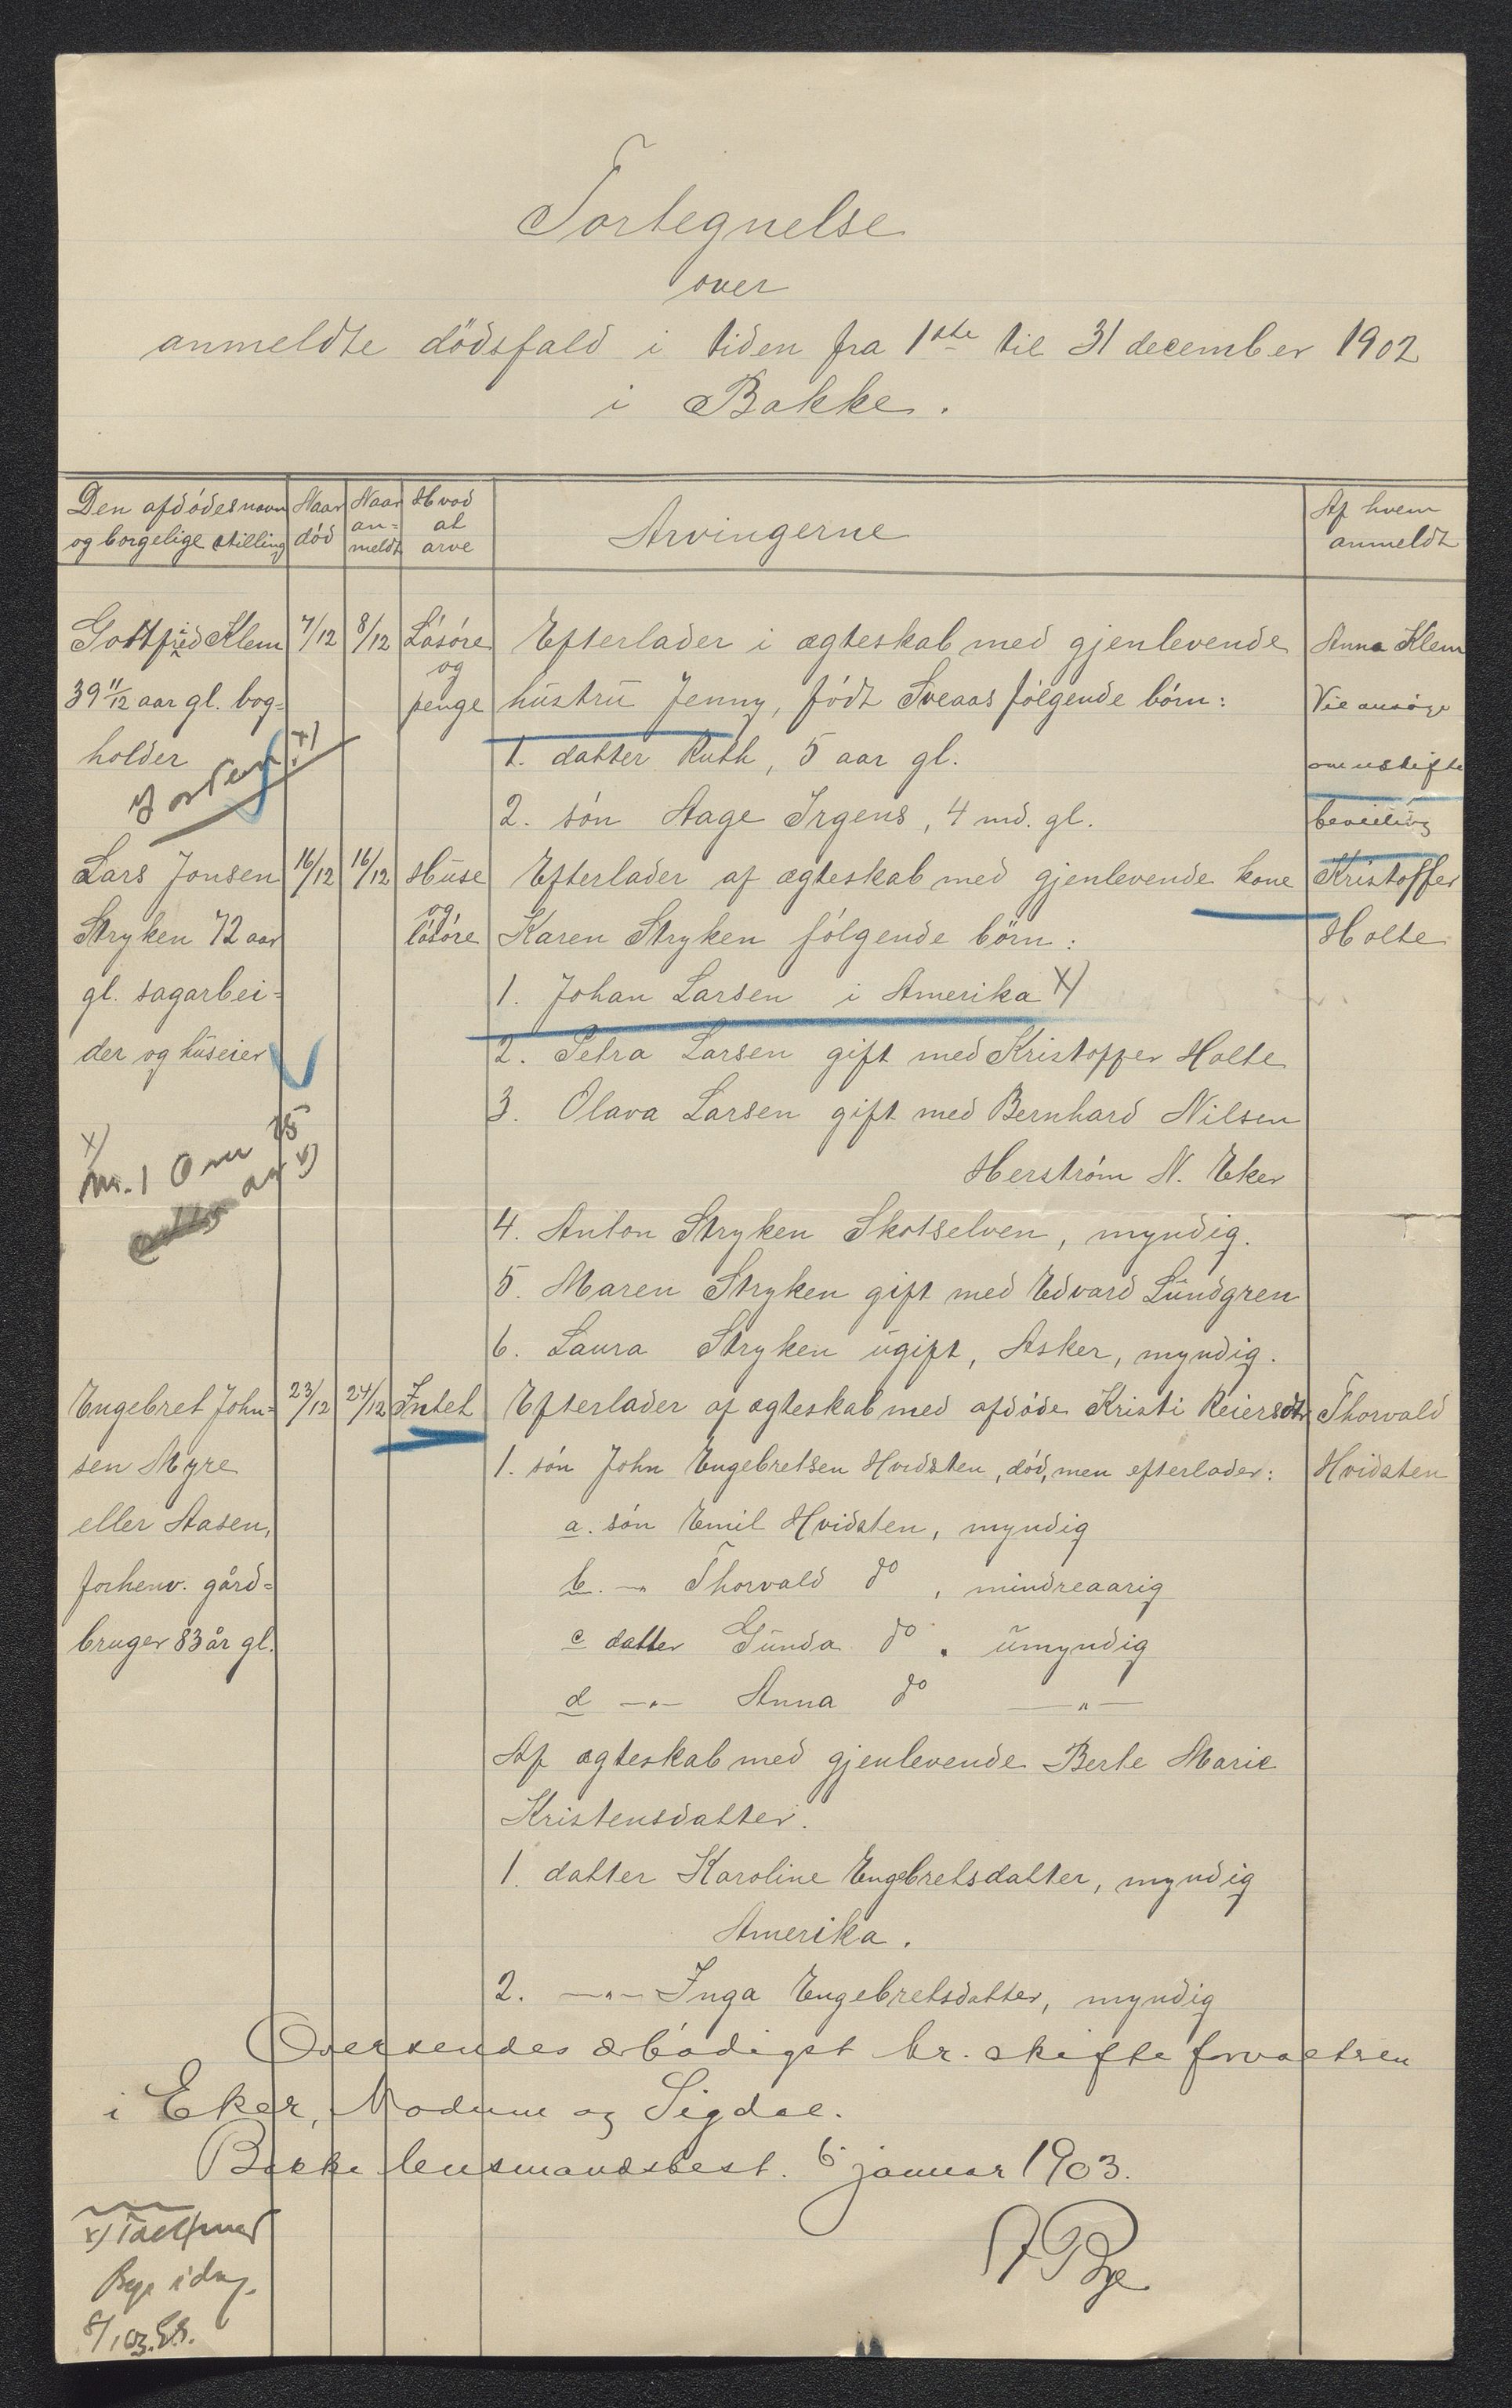 Fortegnelse
over
anmeldte dödsfald i tiden fra 1ste til 31 december 1902
i Bakke.
Den afdödes navn og borgelige stilling
Naar död
Naar an= meldt
Hvad at arve
Arvingerne
Af hvem anmeldt
Gottfried Klem
39 11/12 aar gl. bog=
holder
7/12
8/12
Lösöre
og
penge
Efterlader i ægteskab med gjenlevende
hustru Jenny, födt Sveaas fölgende börn:
1. datter Ruth, 5 aar gl.
2. sön Aage Irgens, 4 md. gl.
Anna Klem
Vil ansöge
om uskifte
bevilling
Lars Jonsen
Stryken 72 aar
gl. sagarbei=
der og huseier
16/12
16/12
Huse
og
lösöre
Efterlader af ægteskab med gjenlevende kone
Karen Stryken fölgende börn:
1. Johan Larsen i Amerika x)
2. Petra Larsen gift med Kristoffer Holte
3. Olava Larsen gift med Bernhard Nilsen
Herström N. Eker
4. Anton Stryken Skotselven, myndig.
5. Maren Stryken gift med Edvard Lundgren
6. Laura Stryken ugift, Asker, myndig.
Kristoffer
Holte
x)
Nr. 1 Over 25
aar x)
Engebret John=
sen Myre
eller Aasen,
forhenv. gård=
bruger 83 år gl.
23/12
24/12
Intet
Efterlader af ægteskab med afdöde Kristi Reiersdtr
1. sön John Engebretsen Hvidsten, död, men efterlader:
a. sön Emil Hvidsten, myndig
b. -"- Thorvald do, mindreaarig
c datter Gunda do. umyndig
d -"- Anna do -"-
Af ægteskab med gjenlevende Berte Marie
Kristensdatter.
1. datter Karoline Engebretsdatter, myndig
Amerika.
2. -"- Inga Engebretsdatter, myndig
Thorvald
Hvidsten
Oversendes ærbödigst hr. skifteforvalteren
i Eker, Modum og Sigdal.
Bakke lensmandsbest. 6 januar 1903.
Bye
x) Talt med
Bye idag.
8/1 03.